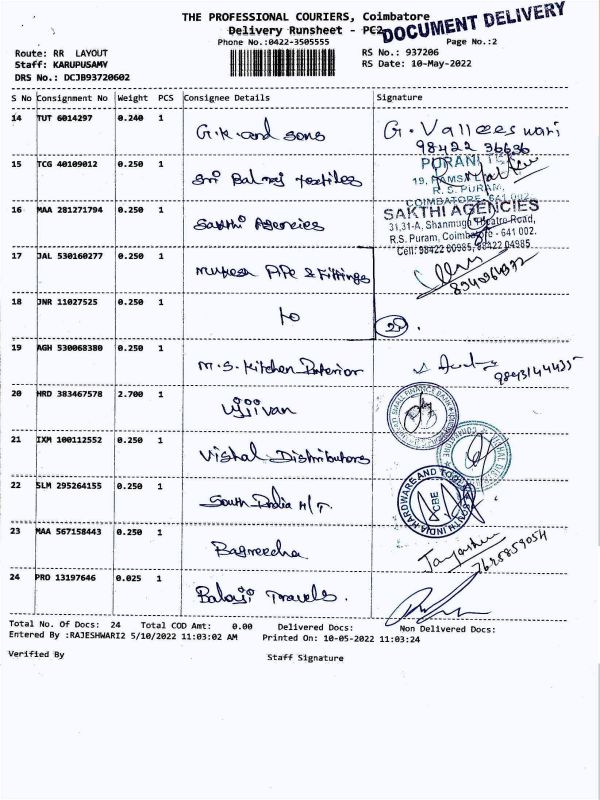 THE PROFESSIONAL COURIERS, Coimbatore
DOCUMENT DELIVERY
Delivery Runsheet - PC2
Phone No.:0422-3505555
Page No.:2
Route: RR LAYOUT
RS No.: 937206
Staff: KARUPUSAMY
RS Date: 10-May-2022
DRS No.: DCJB93720602
S No Consignment No Weight PCS Consignee Details Signature
14 TUT 6014297 0.240 1 G.K. and sons G. Valleeswari
98422 36636
15 TCG 40109012 0.250 1 Sri Balraj textiles
PURANI
R. S. PURAM,
COIMBATORE - 641 002.
16 MAA 281271794 0.250 1 Sakthi Agencies
SAKTHI AGENCIES
31,31-A, Shanmuga Theatre Road,
R.S. Puram, Coimbatore - 641 002.
Cell: 98422 00985, 98422 04985
17 JAL 530160277 0.250 1 Mukesh PiPe & Fittings
18 JNR 11027525 0.250 1 to
19 AGH 530068380 0.250 1 M.S. Kitchen Interior
20 HRD 383467578 2.700 1 Ujjivan
SMALL FINANCE BANK
21 IXM 100112552 0.250 1 Vishal Distributors
22 SLM 295264155 0.250 1 South India H/T.
SOUTH INDIA HARDWARE AND TOOLS
CBE
23 MAA 567158443 0.250 1 Bagreecha
7695859054
24 PRO 13197646 0.025 1 Balaji Travels.
Total No. Of Docs: 24 Total COD Amt: 0.00 Delivered Docs: Non Delivered Docs:
Entered By :RAJESHWARI2 5/10/2022 11:03:02 AM Printed On: 10-05-2022 11:03:24
Verified By Staff Signature